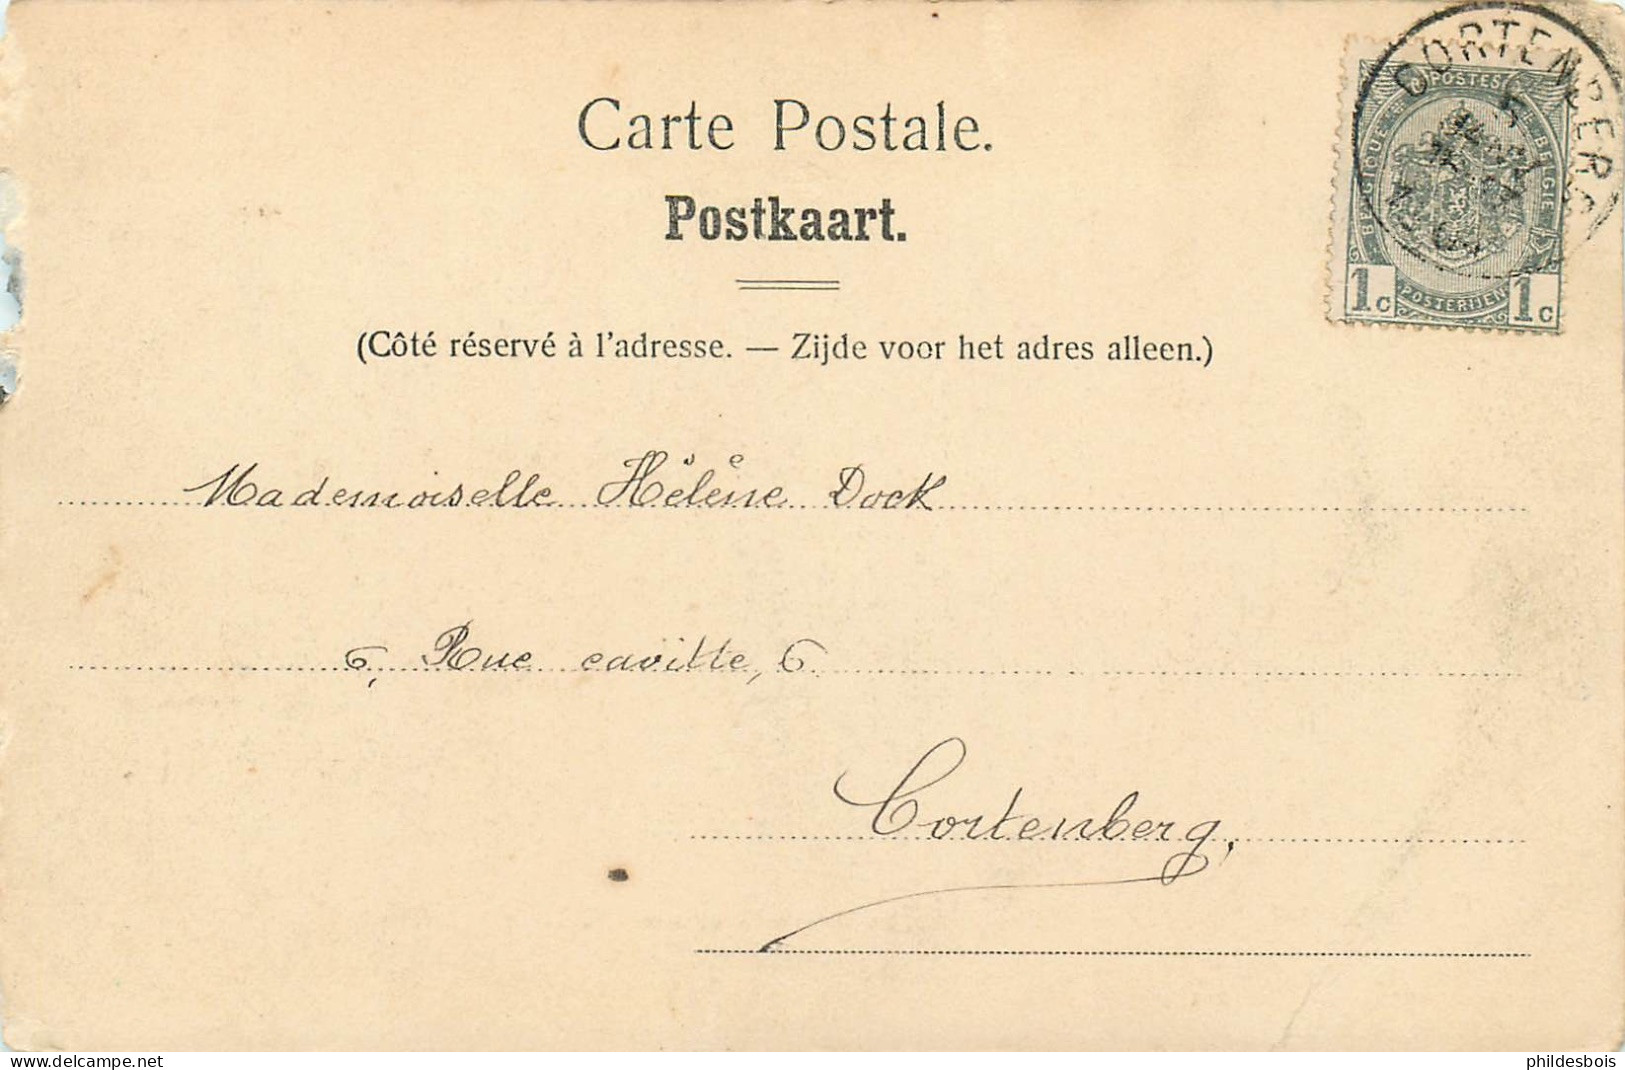 Carte Postale.
Postkaart.
(Côté réservé à l'adresse. — Zijde voor het adres alleen.)
CORTENBERG
& POSTES
BELGIQUE
BELGIE
POSTERIJEN
1c 1c
Mademoiselle Hélène Dock
6, Rue cavitte, 6
Cortenberg,
delcampe.net
phildesbois